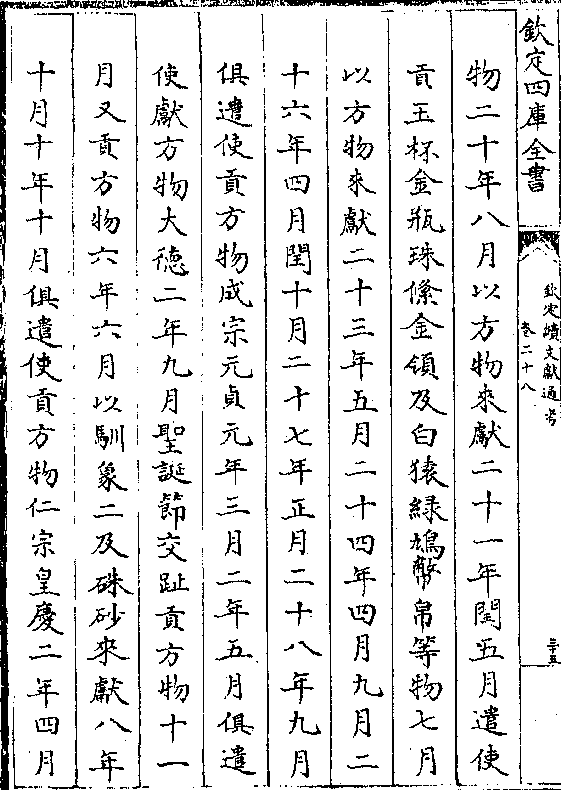 欽定四庫全書
欽定續文獻通考
卷二十八
三十五
物二十年八月以方物來獻二十一年閏五月遣使
貢玉杯金瓶珠絛金領及白猿綠鳩幣帛等物七月
以方物來獻二十三年五月二十四年四月九月二
十六年四月閏十月二十七年正月二十八年九月
俱遣使貢方物成宗元貞元年三月二年五月俱遣
使獻方物大德二年九月聖誕節交趾貢方物十一
月又貢方物六年六月以馴象二及硃砂來獻八年
十月十年十月俱遣使貢方物仁宗皇慶二年四月